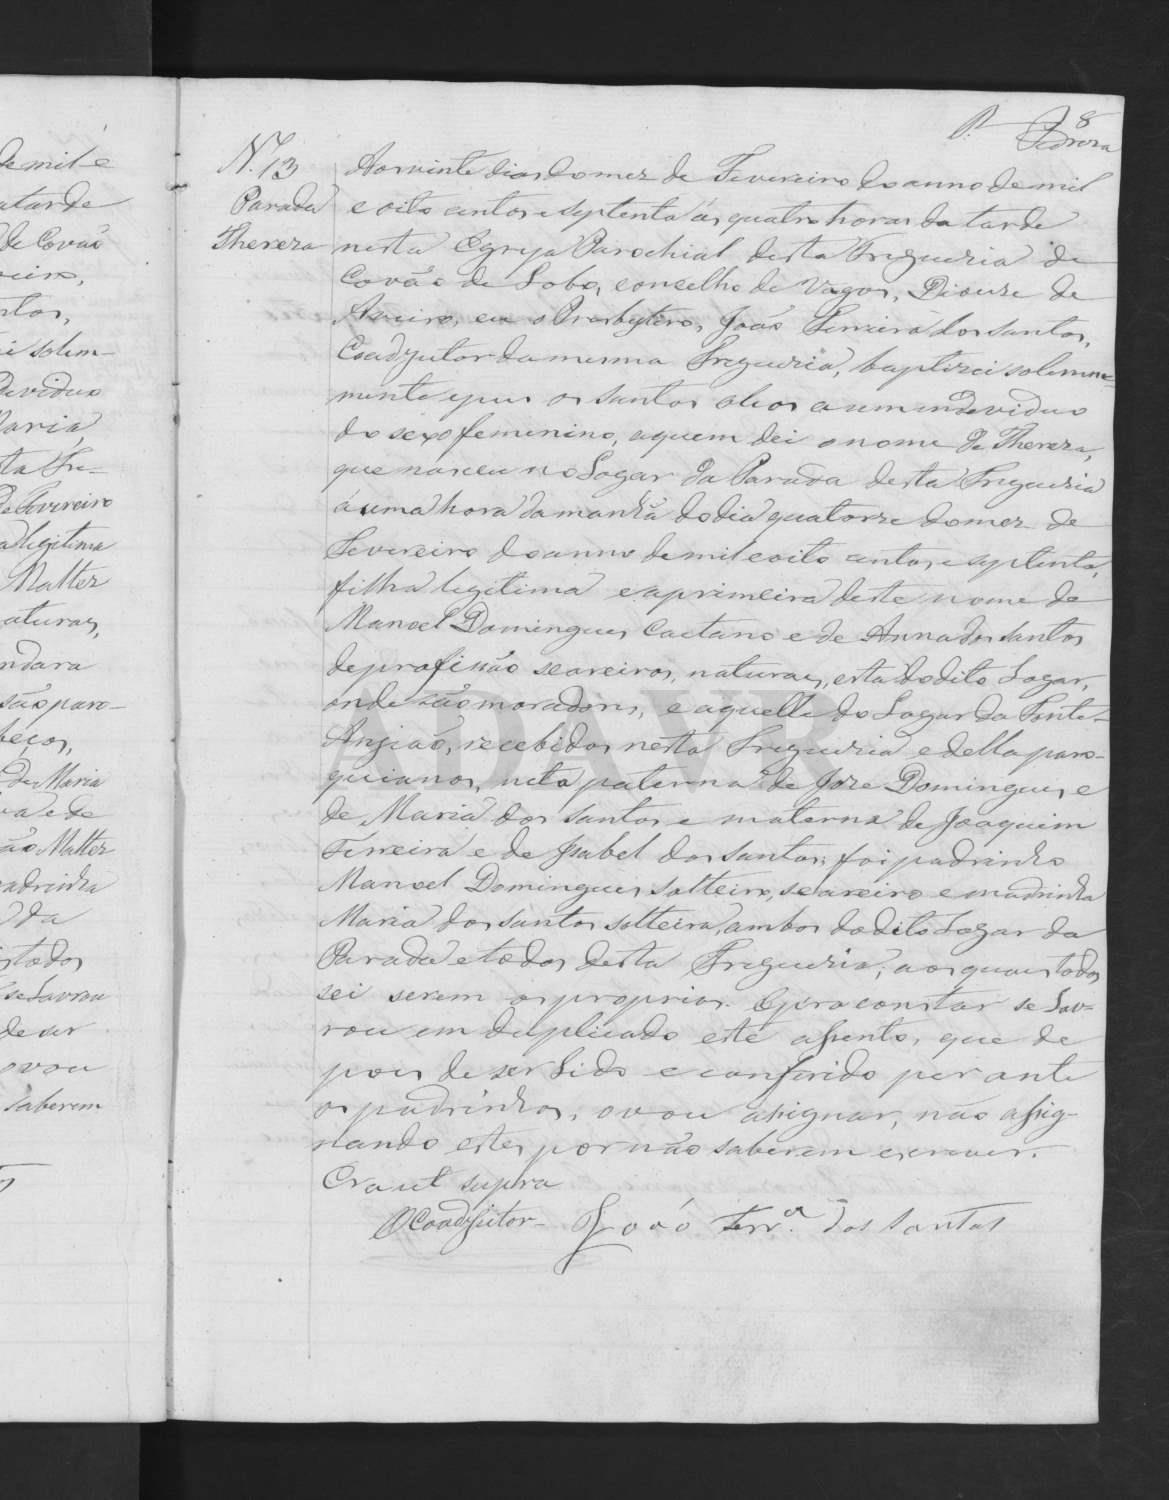 8
N.º 13
Parada
Thereza
Aos vinte dias do mez de Fevereiro do anno de mil
e oito centos e septenta ás quatro horas da tarde
nesta Egreja Parochial desta Freguezia de
Covão de Lobo, concelho de Vagos, Diocese de
Aveiro, eu o Presbytero, João Ferreira dos santos,
Coadjutor da mesma Freguezia, baptizei solemne-
mente e puz os santos oleos a um indeviduo
do sexo femenino, a quem dei o nome de Thereza,
que nasceu no Logar da Parada desta Freguezia
á uma hora da manhã do dia quatorze do mez de
Fevereiro do anno de mil e oito centos e septenta,
filha legitima e a primeira deste nome de
Manoel Domingues Caetano e de Anna dos santos
de profissão seareiros, naturaes, esta do dito Logar,
onde são moradores, e aquelle do Logar da Fonte-
Angião, recebidos nesta Freguezia e della paro-
quianos, neta paterna de Joze Domingues e
de Maria dos santos e materna de Joaquim
Ferreira e de Isabel dos santos; foi padrinho
Manoel Domingues, solteiro, seareiro e madrinha
Maria dos santos solteira, ambos do dito Logar da
Parada e todos desta Freguezia; aos quaes todos
sei serem os proprios. E para constar se Lav-
rou em duplicado este assento, que de
pois de ser Lido e conferido perante
os padrinhos, o vou assignar, não assig-
nando estes por não saberem escrever.
Era ut supra
O Coadjutor João Ferr.ª dos Santos
de mil e
a tarde
de Covão
veiro,
ntos,
i solem-
deviduo
Maria,
ta Fre-
de Fevereiro
a legitima
Mattez
aturaes,
ndara
são paro-
beços,
de Maria
va e de
ão Mattez
adrinha
da
todos
se Lavrou
de ser
o vou
saberem
ADAVR